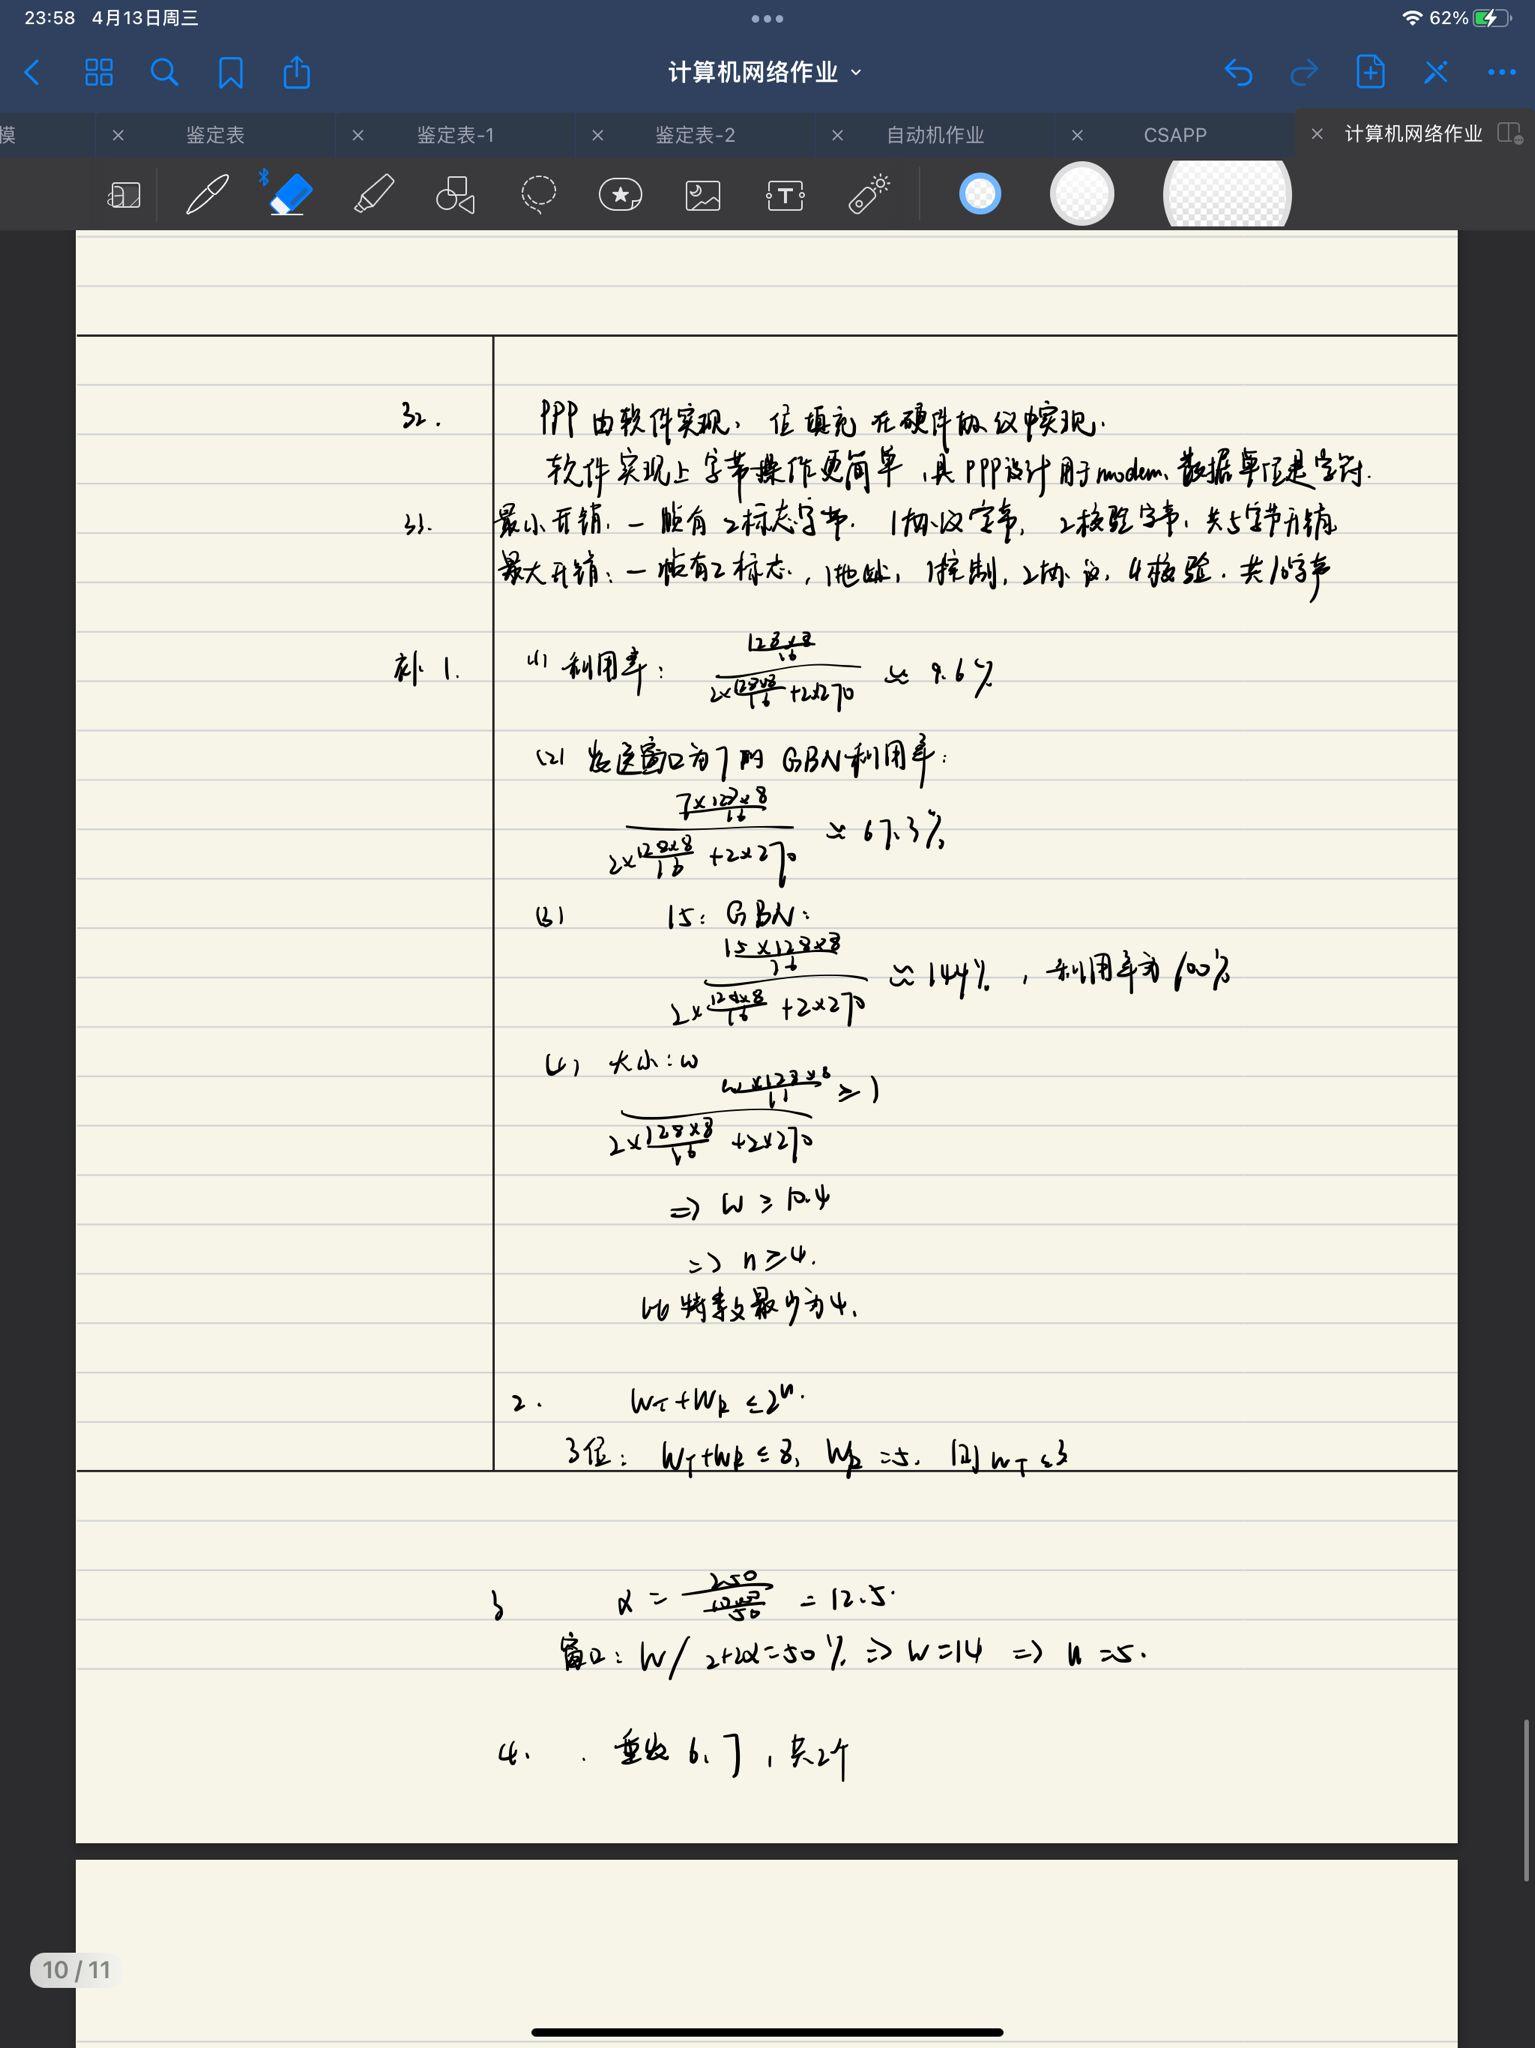 23:58 4月13日周三
62%
计算机网络作业
模
鉴定表
鉴定表-1
鉴定表-2
自动机作业
CSAPP
计算机网络作业
32. PPP由软件实现, 位填充在硬件协议中实现.
软件实现上字节操作更简单, 且PPP设计用于modem, 数据单位是字符.
33. 最小开销: 一帧有2标志字节. 1协议字节, 2校验字节, 共5字节开销
最大开销: 一帧有2标志, 1地址, 1控制, 2协议, 4校验. 共10字节
补1. (1) 利用率: (128×8/16) / (2×128×8/16 + 2×270) ≈ 9.6%
(2) 发送窗口为7的GBN利用率:
(7×128×8/16) / (2×128×8/16 + 2×270) ≈ 67.3%
(3) 15: GBN:
(15×128×8/16) / (2×128×8/16 + 2×270) ≈ 144%, 利用率为100%
(4) 大小: w
(w×128×8/16) / (2×128×8/16 + 2×270) ≥ 1
=> W ≥ 10.4
=> n ≥ 4.
比特数最少为4.
2. WT+WR ≤ 2ⁿ.
3位: WT+WR ≤ 8, WR = 5. 则WT ≤ 3
3 α = 250 / = 12.5.
窗口: W / 2+2α = 50% => W = 14 => n = 5.
4. 重发6, 7, 共2个
10 / 11